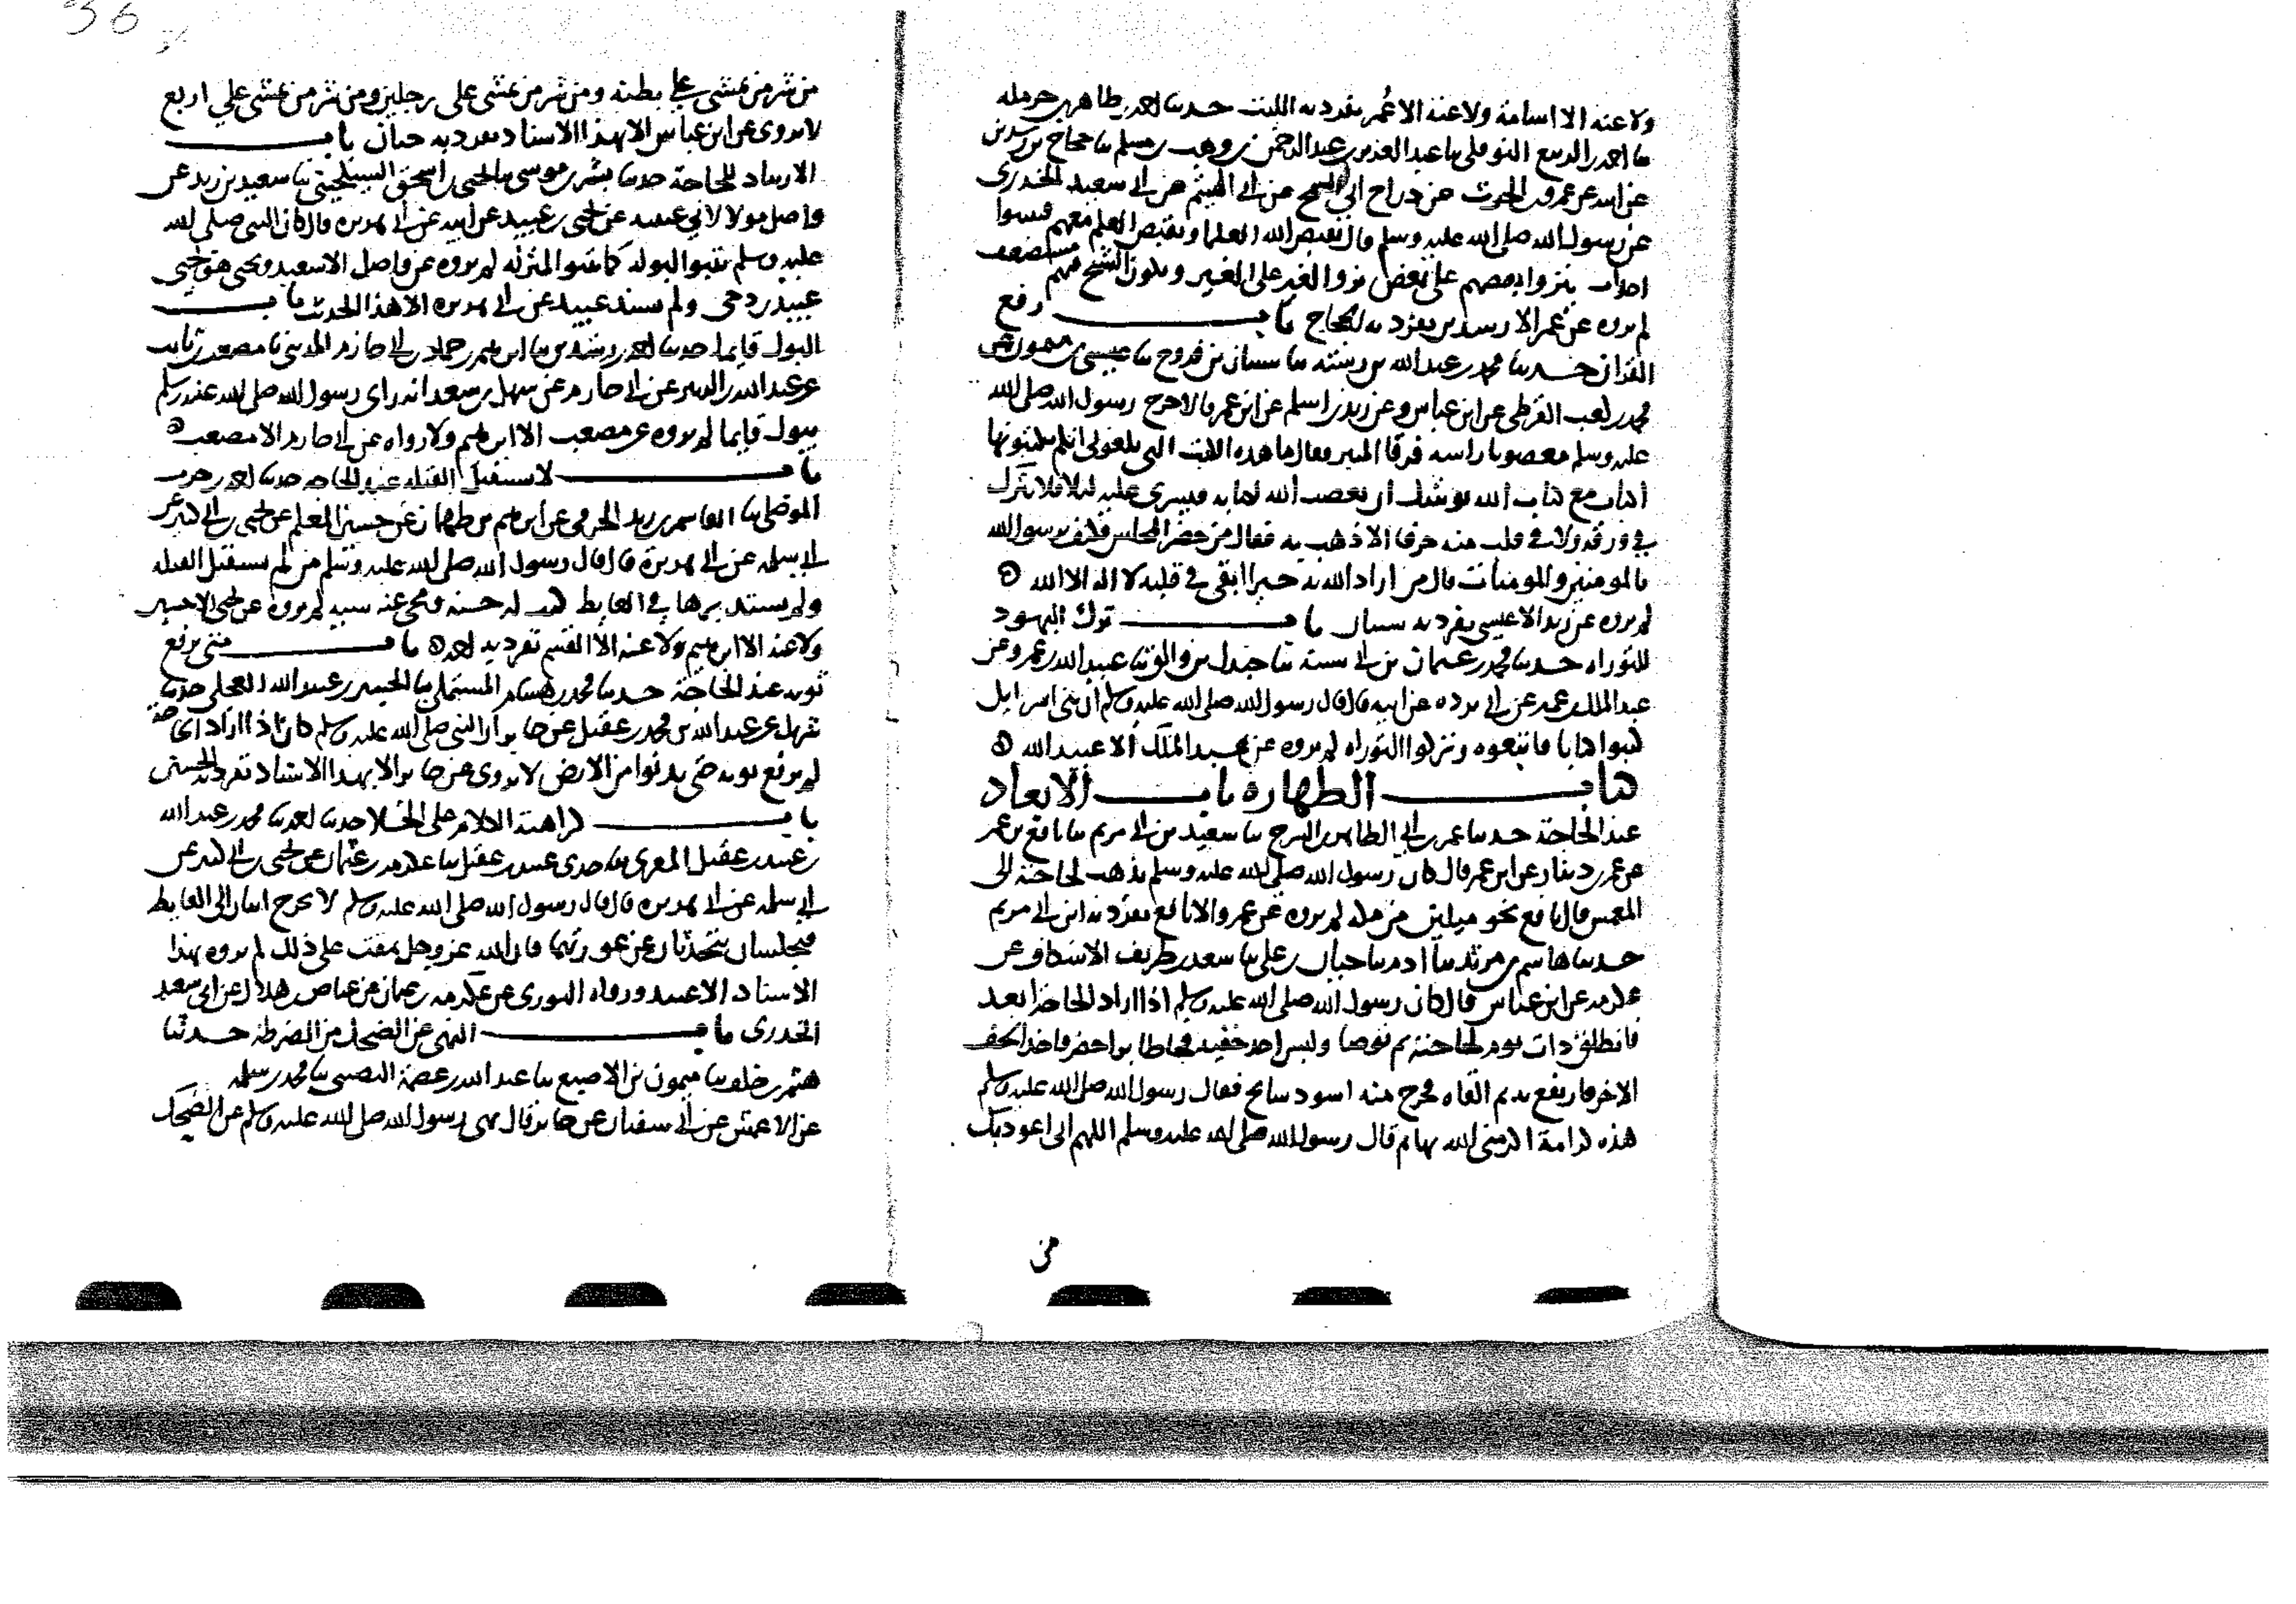 ولا عنه الا اسامة ولا عنه الا عمر تفرد به الليث حدثنا احمد بن طاهر بن حرمله
ثنا احمد بن الربيع النوفلي ثنا عبد العزيز بن عبد الرحمن بن وهب بن مسلم ثنا حجاج بن رشدين
عن ابيه عن عمرو بن الحرث عن دراج ابي السمح عن ابي الهيثم عن ابي سعيد الخدري
عن رسول الله صلى الله عليه وسلم قال يقبض الله العلما ويقبض العلم معهم فينشوا
احداث ينزوا بعضهم على بعض نزو العير على العير ويكون الشيخ فيهم مستضعف
لم يروه عن عمر الا رشدين تفرد به الحجاج باب رفع
القران حدثنا محمد بن عبد الله بن رسته ثنا شيبان بن فروح ثنا عيسى بن ميمون عن
محمد بن كعب القرظي عن ابن عباس وعن زيد بن اسلم عن ابن عمر قالا خرج رسول الله صلى الله
عليه وسلم معصوبا راسه فرقا المنبر فقال ما هذه الكتب التي يلغوني انكم تكتبونها
اكتاب مع كتاب الله يوشك ان يغضب الله لكتابه فيسرى عليه ليلا فلا يترك
في ورقة ولا في قلب منه حرفا الا ذهب به فقال من حضر المجلس فكيف يرسول الله
بالمومنين والمومنات قال من اراد الله به خيرا ابقى في قلبه لا اله الا الله
لم يروه عن زيد الا عيسى تفرد به شيبان باب ترك اليهود
التوراه حدثنا محمد بن عثمان بن ابي شيبة ثنا جندل بن والق ثنا عبيد الله بن عمرو عن
عبد الملك بن عمير عن ابي برده عن ابيه قال قال رسول الله صلى الله عليه وسلم ان بني اسرايل
كتبوا كتابا فاتبعوه وتركوا التوراه لم يروه عن عبد الملك الا عبيد الله
كتاب الطهارة باب الابعاد
عند الحاجة حدثنا عمرو بن ابي الطاهر بن السرح ثنا سعيد بن ابي مريم ثنا نافع بن عمر
عن عمرو بن دينار عن ابن عمر قال كان رسول الله صلى الله عليه وسلم يذهب لحاجته الى
المغمس قال نافع نحو ميلين من مكة لم يروه عن عمرو الا نافع تفرد به ابن ابي مريم
حدثنا هاشم بن مرثد ثنا ادم ثنا حبان بن علي ثنا سعد بن طريف الاسكاف عن
عكرمه عن ابن عباس قال كان رسول الله صلى الله عليه وسلم اذا اراد الحاجة ابعد
فانطلق ذات يوم لحاجته ثم توضا ولبس احد خفيه فجا طاير اخضر فاخذ الخف
الاخر فارتفع به ثم القاه فخرج منه اسود سالح فقال رسول الله صلى الله عليه وسلم
هذه كرامة اكرمني الله بها ثم قال رسول الله صلى الله عليه وسلم اللهم اني اعوذ بك
من
36
من شر من يمشي على بطنه ومن شر من يمشي على رجلين ومن شر من يمشي على اربع
لا يروى عن ابن عباس الا بهذا الاسناد تفرد به حبان باب
الارتياد للحاجة حدثنا بشر بن موسى ثنا يحيى بن اسحق السيلحيني ثنا سعيد بن زيد عن
واصل مولا لابي عيينه عن يحيى بن عبيد عن ابيه عن ابي هريره قال كان النبي صلى الله
عليه وسلم يتبوا لبوله كما يتبوا لمنزله لم يروه عن واصل الا سعيد ويحيى هو يحيى بن
عبيد بن دحى ولم يسند عبيد عن ابي هريره الا هذا الحديث باب
البول قايما حدثنا احمد بن رشدين ثنا ابراهيم بن حماد بن ابي حازم المديني ثنا مصعب بن ثابت
عن عبد الله بن الزبير عن ابي حازم عن سهل بن سعد انه راى رسول الله صلى الله عليه وسلم
يبول قايما لم يروه عن مصعب الا ابراهيم ولا رواه عن ابي حازم الا مصعب
باب لا يستقبل القبلة عند الحاجه حدثنا احمد بن حرب
الموصلي ثنا القاسم بن يزيد الجرمي عن ابراهيم بن طهمان عن حسين المعلم عن يحيى بن ابي كثير عن
ابي سلمه عن ابي هريرة قال قال رسول الله صلى الله عليه وسلم من لم يستقبل القبله
ولم يستدبرها في الغايط كتب له حسنه ومحي عنه سيئه لم يروه عن يحيى الا حسين
ولا عنه الا ابراهيم ولا عنه الا القسم تفرد به احمد باب متى يرفع
ثوبه عند الحاجة حدثنا محمد بن هشام المستملي ثنا الحسين بن عبيد الله العجلي حدثنا
شريك عن عبد الله بن محمد بن عقيل عن جابر ان النبي صلى الله عليه وسلم كان اذا اراد الحاجة
لم يرفع ثوبه حتى يدنوا من الارض لا يروى عن جابر الا بهذا الاسناد تفرد به الحسين
باب كراهية الكلام على الخلا حدثنا احمد ثنا محمد بن عبد الله
بن عبيد بن عقيل المقري ثنا جدي عبيد بن عقيل ثنا عكرمه بن عمار عن يحيى بن ابي كثير عن
ابي سلمه عن ابي هريره قال قال رسول الله صلى الله عليه وسلم لا يخرج اثنان الى الغايط
فيجلسان يتحدثان عن عورتهما فان الله عز وجل يمقت على ذلك لم يروه بهذا
الاسناد الا عبيد ورواه الثوري عن عكرمه بن عمار عن عياض بن هلال عن ابي سعيد
الخدري باب النهي عن الضحك من الضرطة حدثنا
هيثم بن خلف ثنا ميمون بن الاصبغ ثنا عبد الله بن عصمة النصيبي ثنا محمد بن سلمه
عن الاعمش عن ابي سفيان عن جابر قال نهى رسول الله صلى الله عليه وسلم عن الضحك